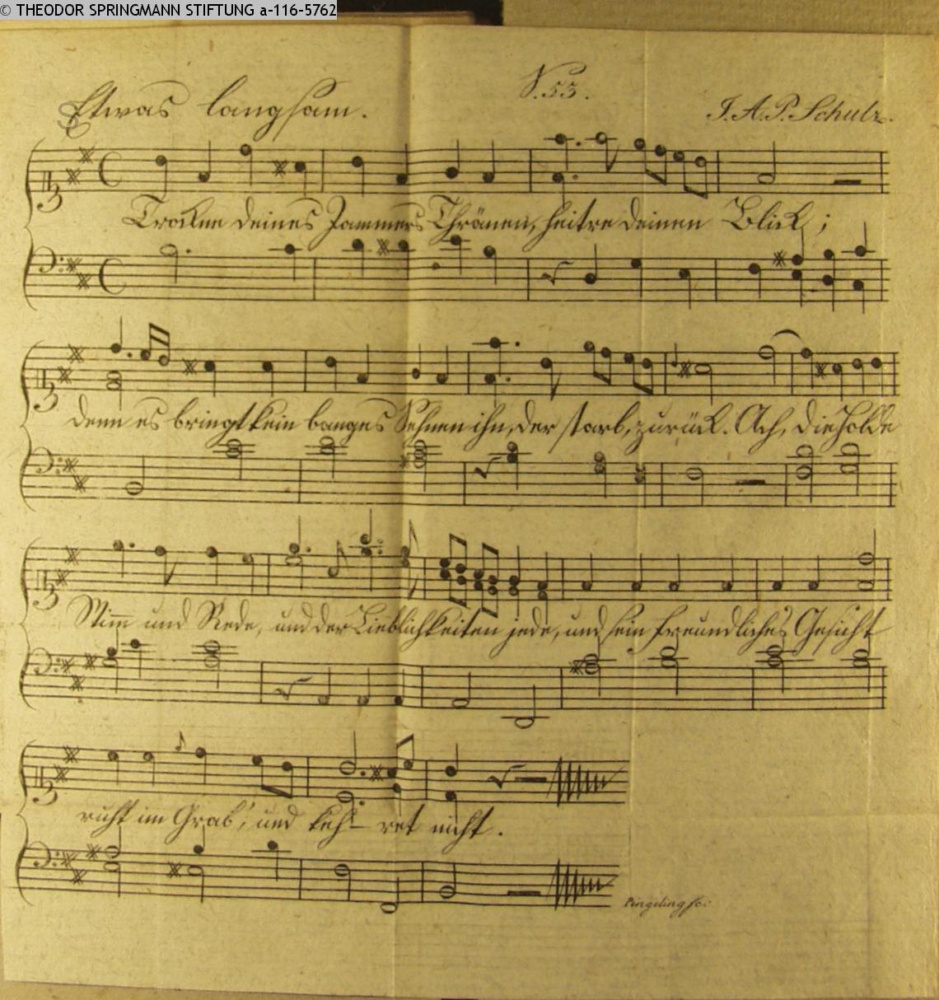 © THEODOR SPRINGMANN STIFTUNG a-116-5762
S. 53.
Etwas langsam.
J. A. P. Schulz.
Trockne deines Jammers Thränen, heitre deinen Blick;
denn es bringt kein banges Sehnen ihn, der starb, zurück. Ach, die holde
Stim̅ und Rede, und der Lieblichkeiten jede, und sein freundliches Gesicht
ruht im Grab', und keh- ret nicht.
Pingeling sc: